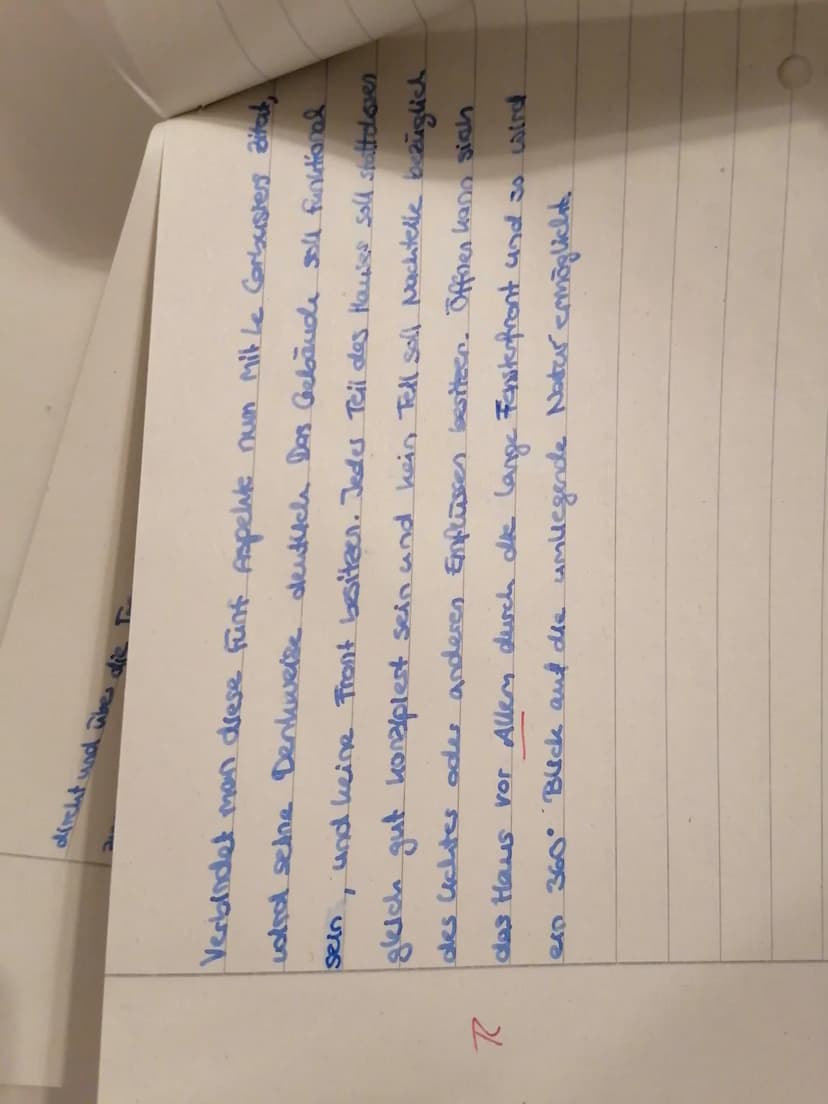 direkt und über die
Verbindet man diese Fünf Aspekte nun mit Le Corbusiers Zitat,
wird seine Denkweise deutlich. Das Gebäude soll funktional
sein, und keine Front besitzen. Jeder Teil des Hauses soll stattdessen
gleich gut konzipiert sein und kein Teil soll Nachteile bezüglich
des Lichtes oder anderen Einflüssen besitzen. Öffnen kann sich
das Haus vor Allem durch die lange Fensterfront und so wird
ein 360° Blick auf die umliegende Natur ermöglicht.
R